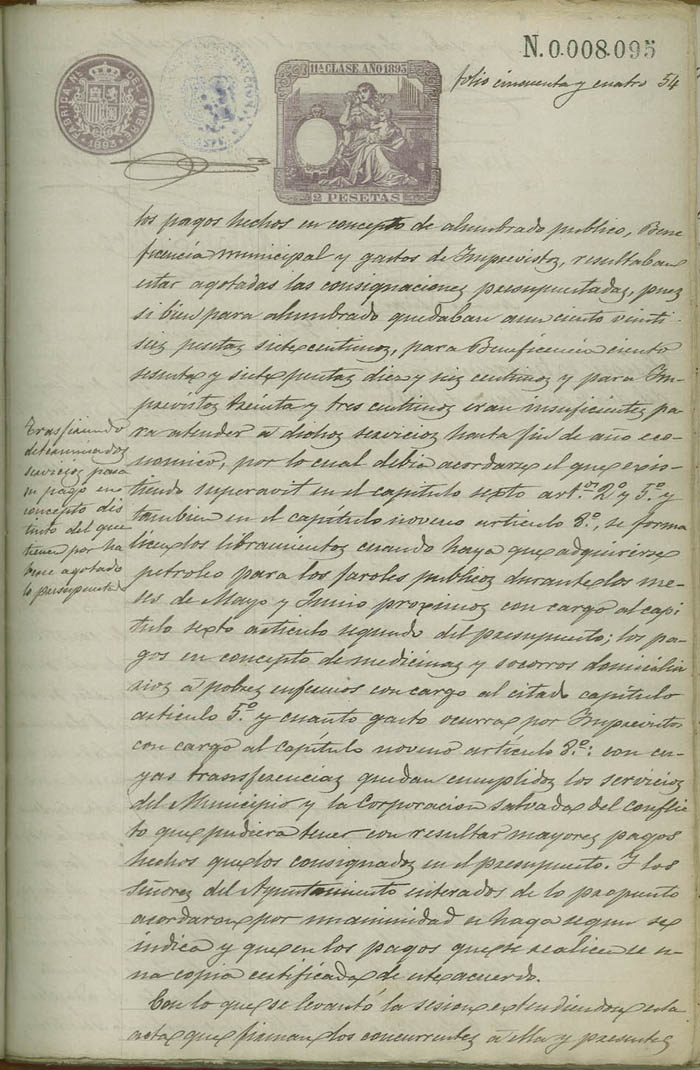 N.0.008.095
folio cincuenta y cuatro 54
FABRICA NL. DEL TIMBRE
1893
11ª CLASE. AÑO 1893
2 PESETAS
los pagos hechos en concepto de alumbrado publico, Bene
ficencia municipal y gastos de Imprevistos, resultaban
estar agotadas las consignaciones presupuestadas, pues
si bien para alumbrado quedaban aun ciento vinti
seis pesetas siete centimos, para Beneficencia ciento
sesenta y siete pesetas diez y seis centimos y para Im-
previstos treinta y tres centimos eran insuficientes pa
ra atender á dichos servicios hasta fin de año eco-
nomico, por lo cual debia acordarse el que exis-
tiendo superavit en el capitulo sexto art.os 2º y 5º y
tambien en el capítulo noveno articulo 8º, se forma
licen los libramientos cuando haya que adquirirse
petroleo para los faroles publicos durante los me-
ses de Mayo y Junio proximos con cargo al capi
tulo sexto articulo segundo del presupuesto; los pa-
gos en concepto de medicinas y socorros domicilia
rios á pobres enfermos con cargo al citado capítulo
articulo 5º y cuanto gasto ocurra por Imprevistos
con cargo al capítulo noveno artículo 8º: con cu-
yas transferencias quedan cumplidos los servicios
del Municipio y la Corporacion salvada del conflic
to que pudiera tener con resultar mayores pagos
hechos que los consignados en el presupuesto. Y los
Señores del Ayuntamiento enterados de lo propuesto
acordaron por unanimidad se haga segun se
indica y que en los pagos que se realicen se u-
na copia certificada de este acuerdo.
Con lo que se levantó la sesion extendiendose esta
acta que firman los concurrentes á ella y presentes
Trasfiriendo
determinados
servicios para
su pago en
concepto dis
tinto del que
tienen por ha
berse agotado
lo presupuestado